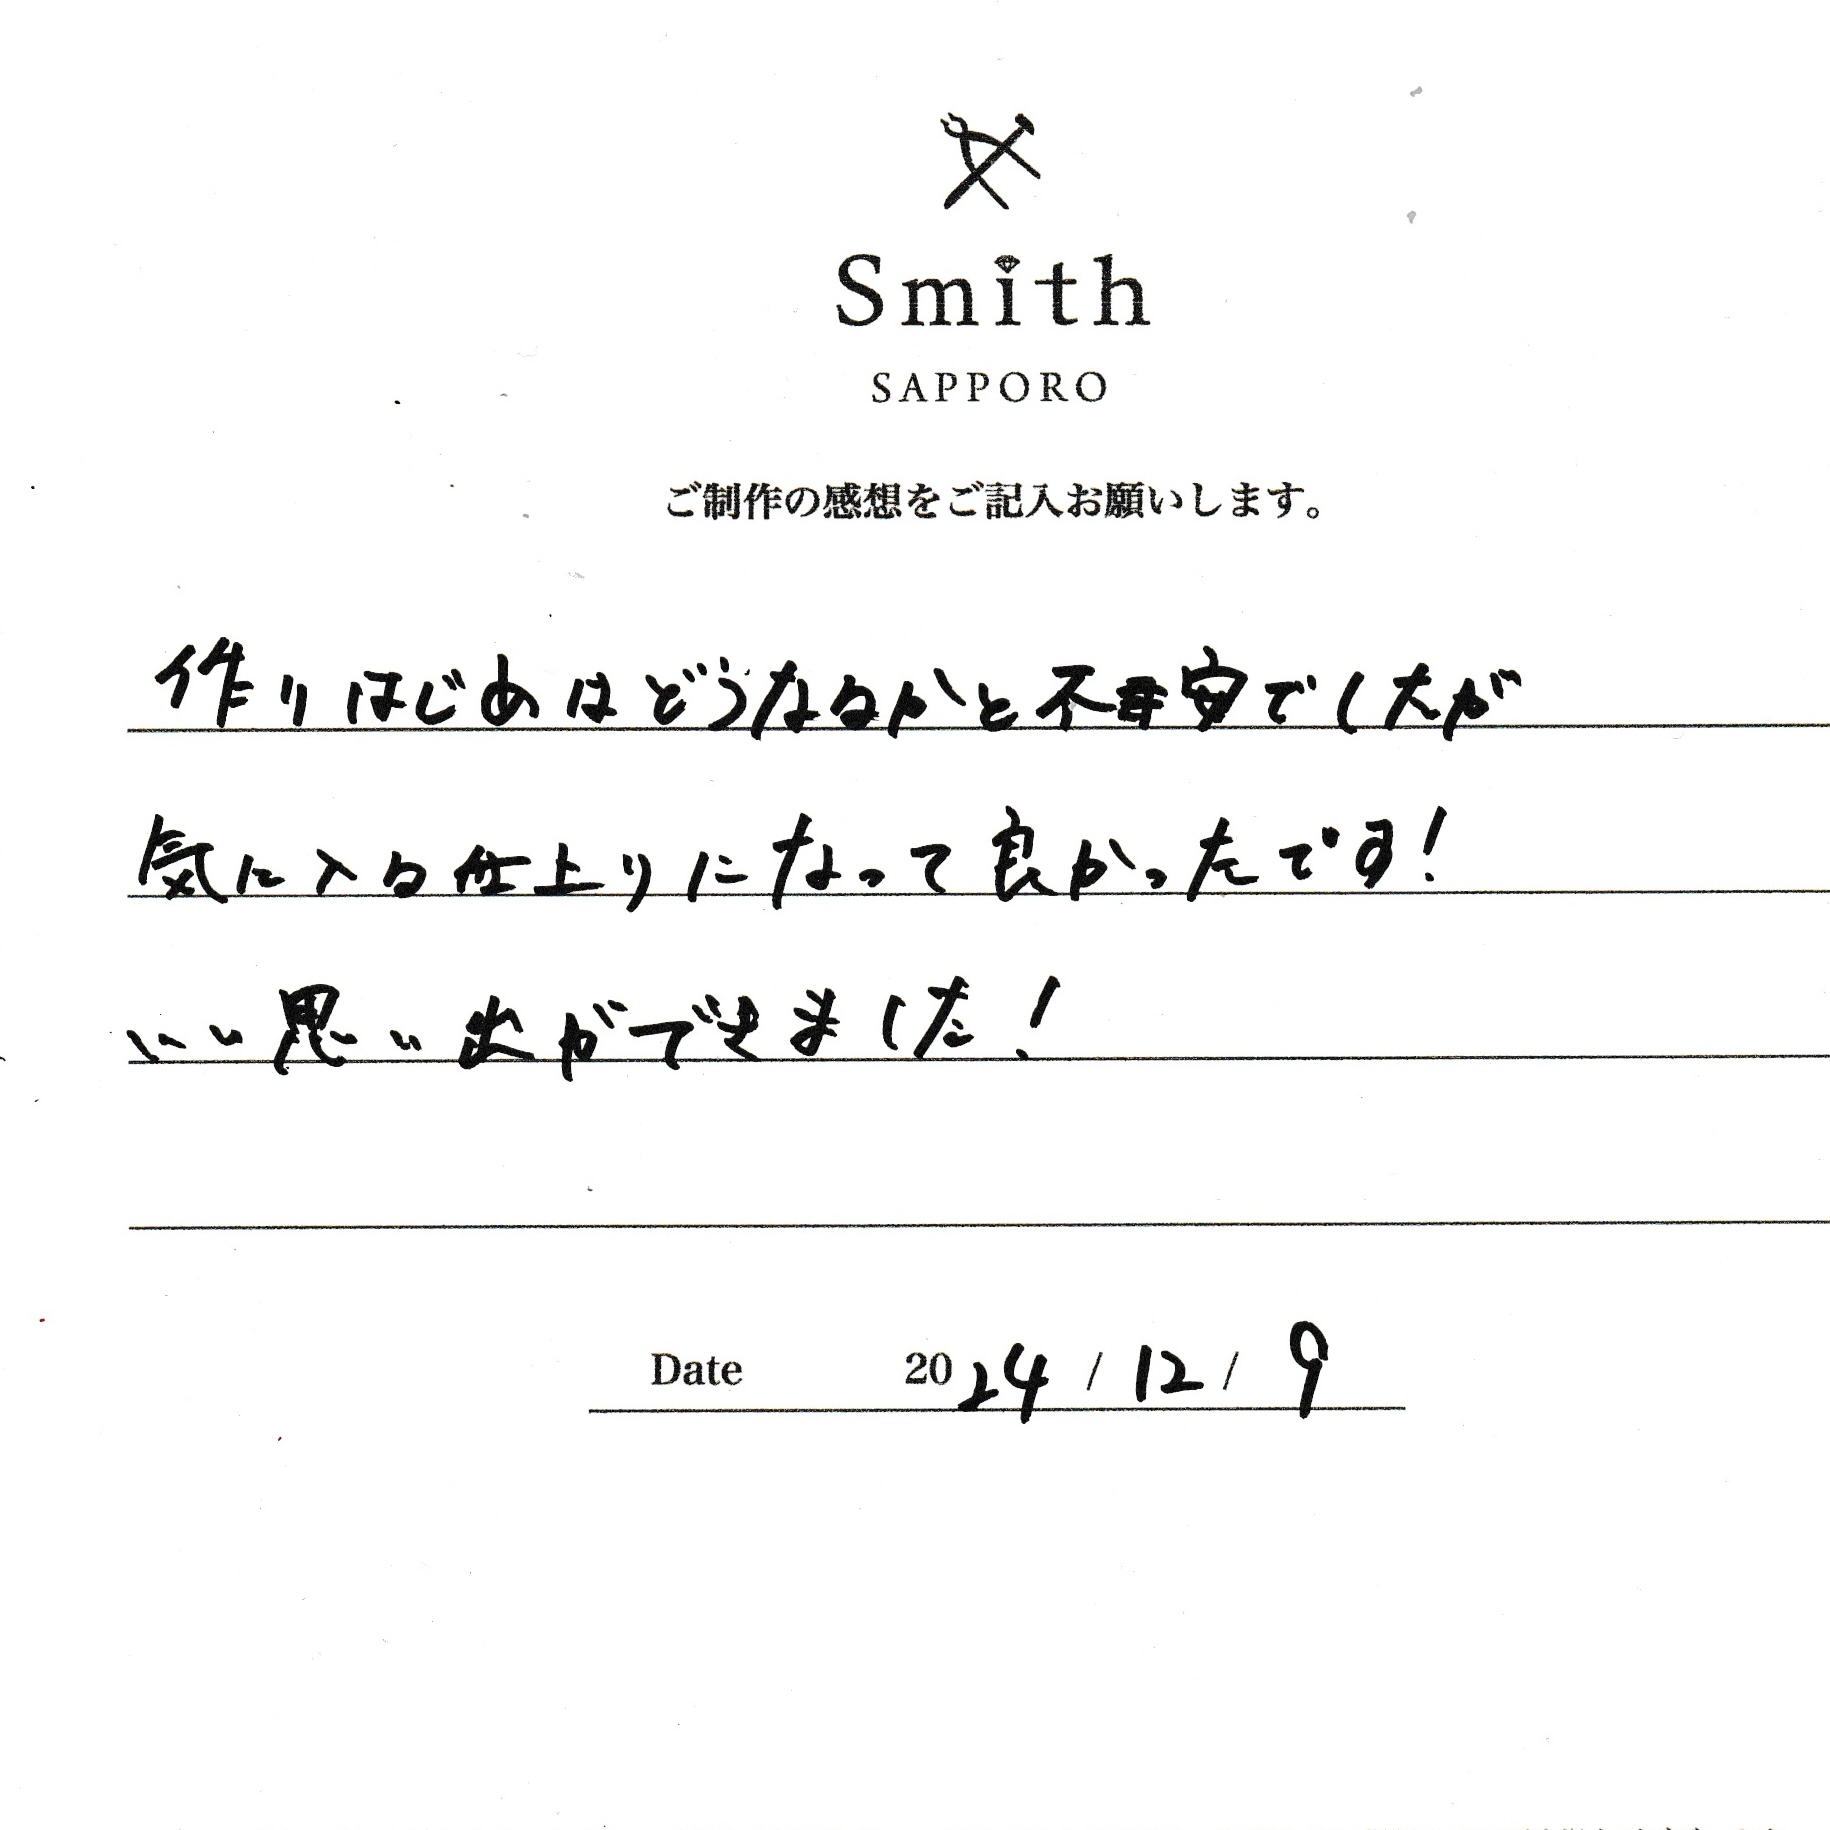 Smith
SAPPORO
ご制作の感想をご記入お願いします。
作りはじめはどうなるかと不安でしたが
気に入る仕上りになって良かったです!
いい思い出ができました!
Date 2024 / 12 / 9